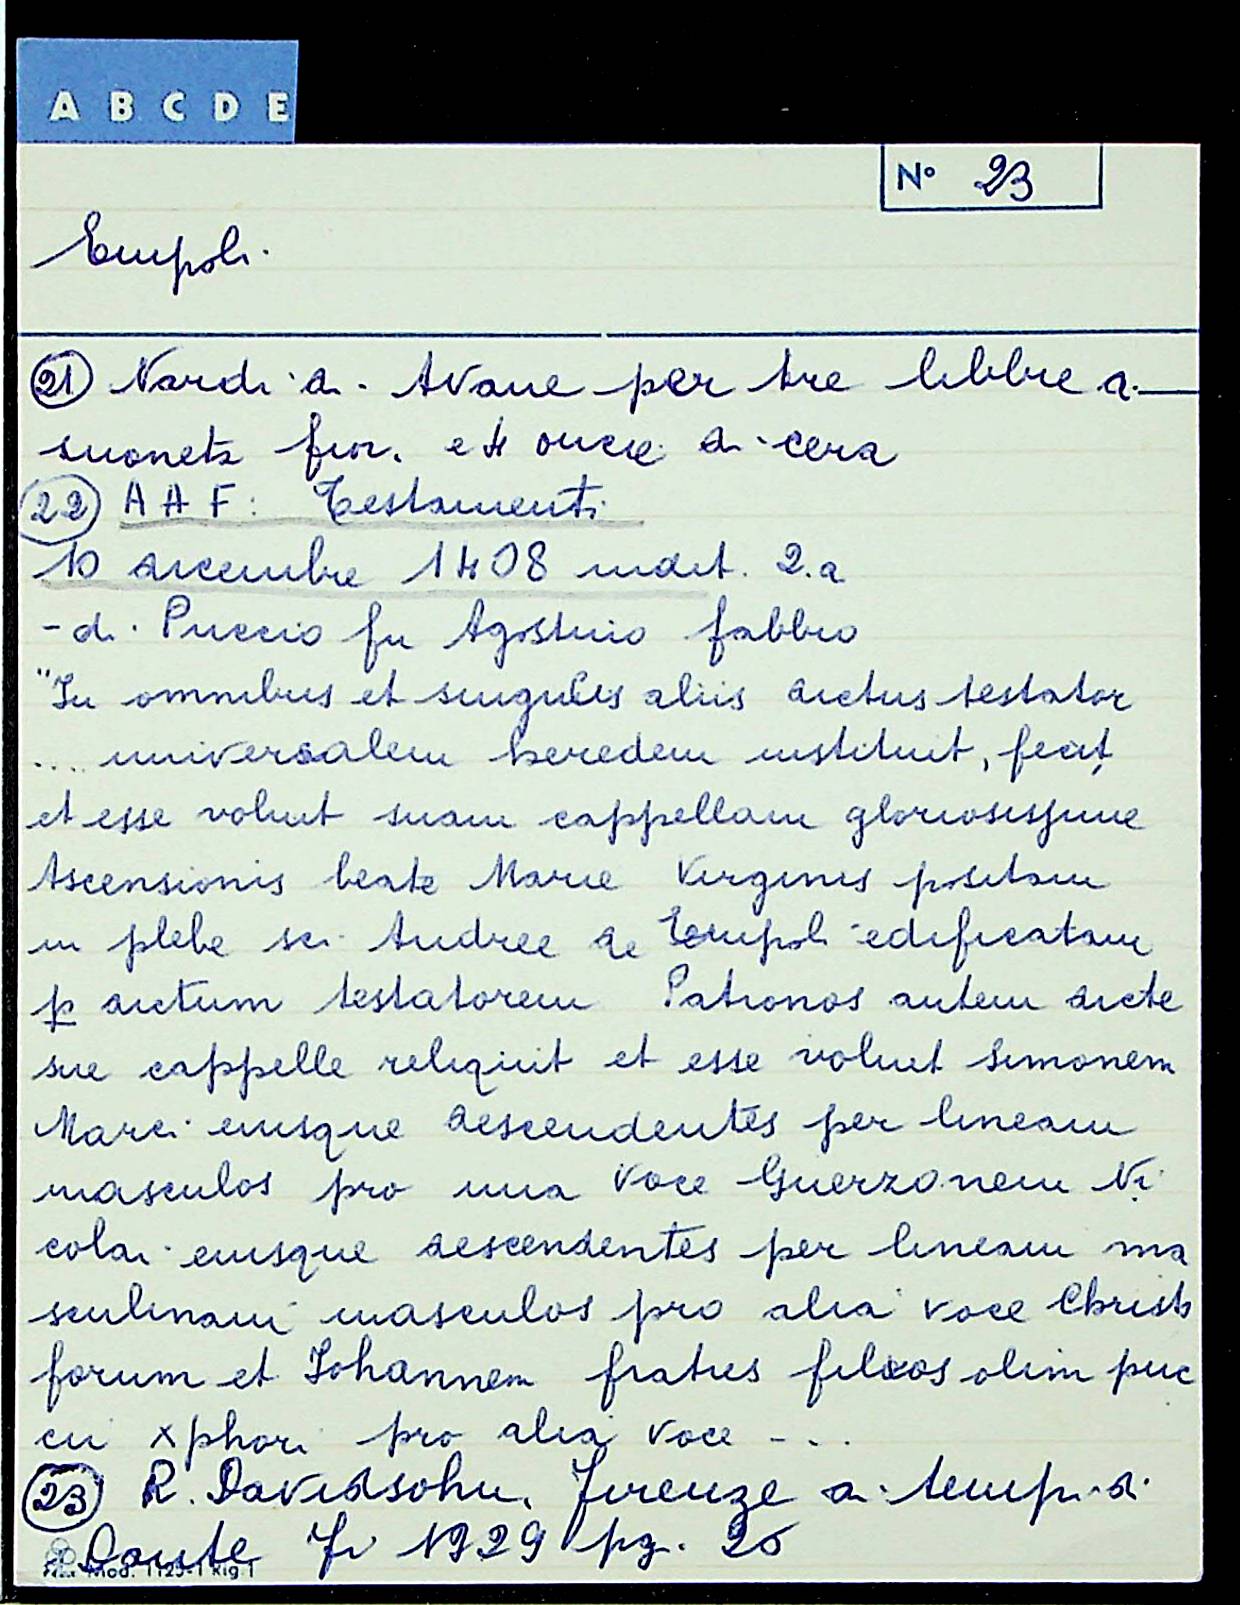 A B C D E
N° 23
Empoli.
21 Nardi di Avane per tre libbre di
moneta fior. e 4 oncie di cera
22 A A F: Testamenti
10 dicembre 1408 indit. 2.a
- di Puccio fu Agostino fabbro
"In omnibus et singulis aliis dictus testator
.... universalem heredem instituit, fecit
et esse voluit suam cappellam gloriosissime
Ascensionis beate Marie Virginis positam
in plebe sci Andree de Empoli edificatam
p dictum testatorem Patronos autem dicte
sue cappelle reliquit et esse voluit Simonem
Marci eiusque descendentes per lineam
masculos pro una voce Guerzonem Ni
colai eiusque descendentes per lineam ma
sculinam masculos pro alia voce Christo
forum et Johannem fratres filios olim puc
cii xphori pro alia voce - ..
23 R. Davidsohn, Firenze ai tempi di
Dante Fi 1929 pg.
Mod. 1125-1 Rig.1